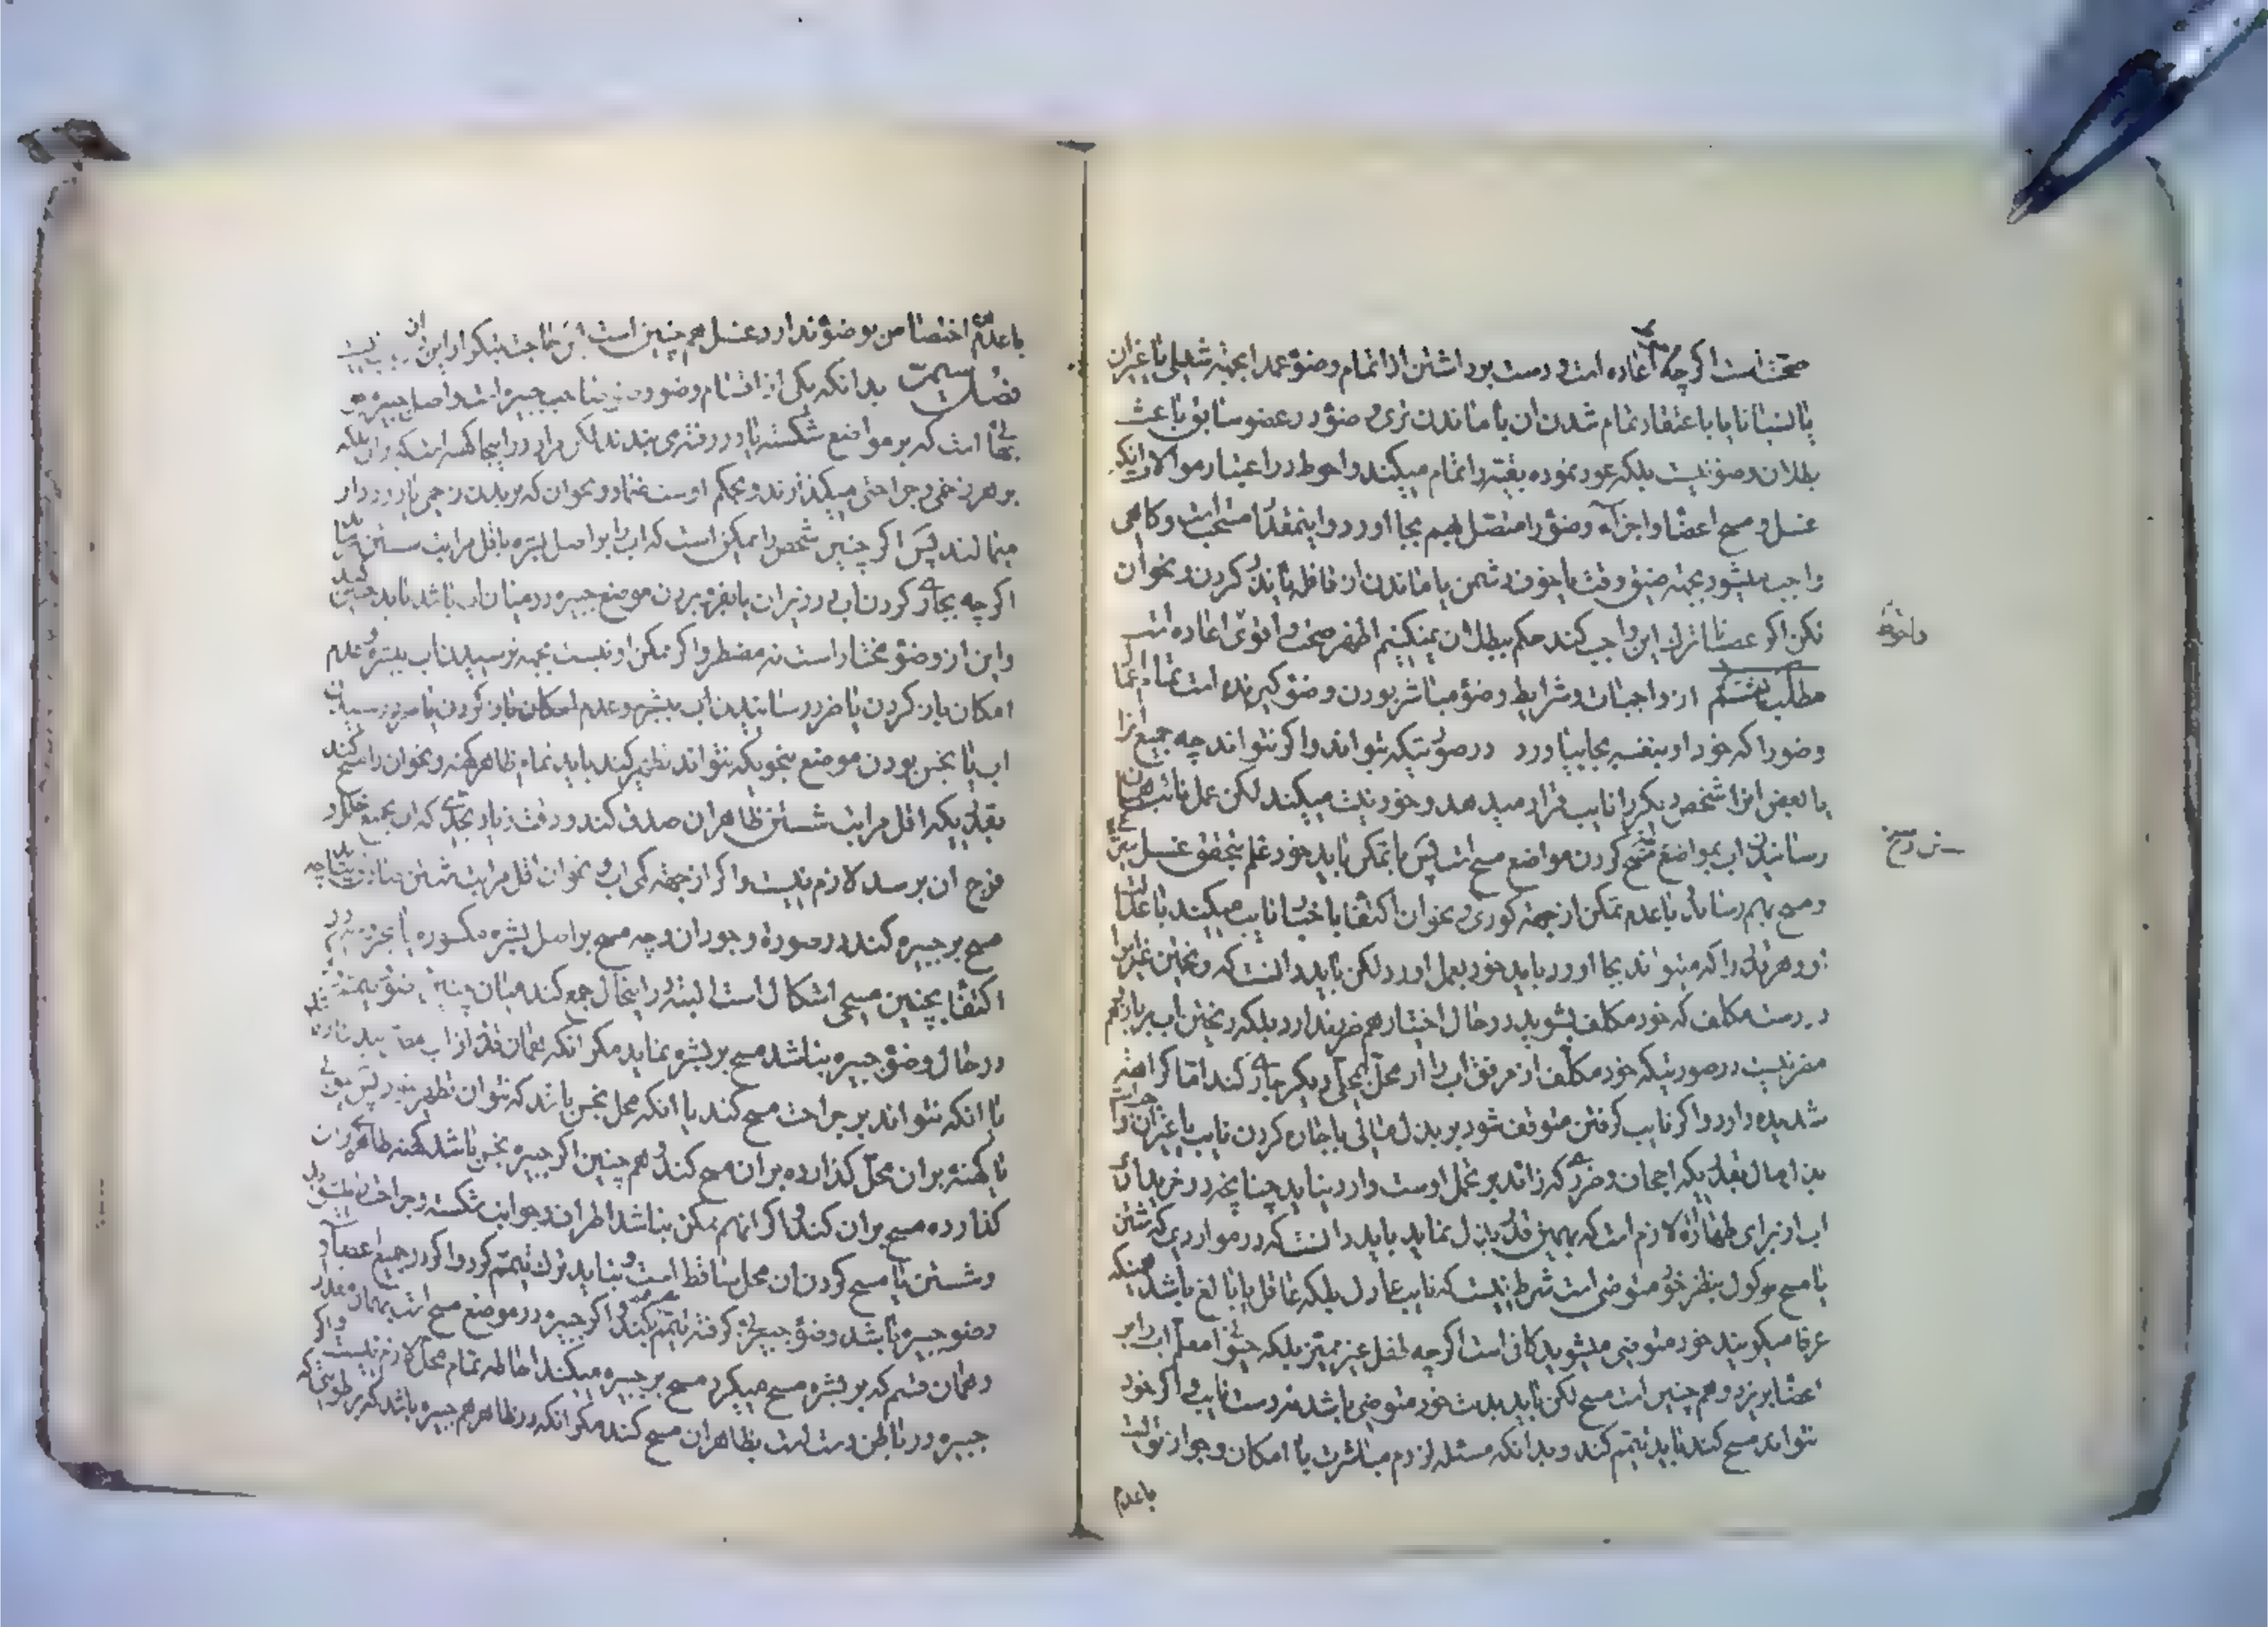 صحتست اگرچه اعاده است و دست برداشتن از اتمام وضوء عمدا بجهته شغلی یا غیر آن
یا نسیانا یا باعتقاد تمام شدن آن با ماندن تری وضوء در عضو سابق باعث
بطلان وضو نیست بلکه عود نموده بقیه را تمام میکند و احوط در اعتبار موالات آنکه
غسل و مسح اعضا و اجزاء وضوء را متصل بهم بجا آورد و اینمقدار مستحب است و گاهی
واجب میشود بجهته ضیق وقت یا خوف دشمن یا ماندن از قافله یا نذر کردن و نحو آن
لکن اگر عصیانا ترک این واجب کند حکم ببطلان نمیکنیم اظهر صحت و اقوی اعاده است
و احوط
مطلب هشتم از واجبات و شرایط وضوء مباشر بودن وضوء گیرنده است تمام
وضو را که خود او بنفسه بجا بیاورد در صورتیکه بتواند و اگر نتواند چه جمیع آنرا
یا بعض آنرا شخص دیگر را نایب قرار میدهد و خود نیت میکند لکن عمل نائب
رسانیدن آب بمواضع کردن مواضع مسح است پس با تمکن باید خود علم بتحقق غسل
و مسح بهم رساند با عدم تمکن از جهته کوری و نحو آن اکتفا باخبار نایب میکند با
و هر قدر را که میتواند بجا آورد باید خود بعمل آورد لکن باید دانست که ریختن غیر آب را
در دست مکلف که خود مکلف بشوید در حال اختیار هم ضرر ندارد بلکه ریختن آب بر
مضر نیست در صورتیکه خود مکلف از مرفق آب را از محل بمحل دیگر جاری کند اما کراهت
شدیده دارد و اگر نایب گرفتن متوقف شود بر بذل مالی باجاره کردن نایب یا غیر آن
بذل مال بقدریکه اجحاف و ضرری که زائد بر تحمل اوست وارد نیاید چنانچه در خریدن
آب از برای طهارة لازم است که بهمین قدر بذل نماید باید دانست که در مواردی که شستن
یا مسح موکول بنظر خود متوضی است شرط نیست که نایب عادل بلکه عاقل یا بالغ باشد همینکه
عرفا میگویند خود متوضی میشوید کافی است اگرچه طفل غیر ممیز بلکه حیوان معلم آب را بر
اعضا بریزد و هم چنین است مسح لکن باید بدست خود متوضی باشد نه دست نایب و اگر خود
نتواند مسح کند باید تیمم کند و بدانکه مسئله لزوم مباشرت با امکان و جواز تولیت
با عدم
با عدم اختصاص بوضوء ندارد غسل هم چنین است
فصل بدانکه یکی از اقسام وضو وضوء صاحب جبیره است و اصل جبیره
است که بر مواضع شکسته یا در رفته می بندند لکن مراد در اینجا
بر هر زخمی و جراحتی میگذارند و بحکم اوست ضماد و نحو آن که بر بدن زخمی یا درد دار
میمالند پس اگر چنین شخص را ممکن است که آب را بر اصل بشره باقل مراتب شستن
اگرچه بجاری کردن آب در زیر آن یا بفرو بردن موضع جبیره در میان آب باشد باید چنین کند
و این از وضوء مختار است نه مضطر و اگر ممکن او نیست بجهته نرسیدن آب ببشره و عدم
امکان باز کردن یا ضرر رسانیدن آب ببشره و عدم امکان باز کردن یا ضرر رسیدن
آب یا نجس بودن موضع بنحویکه نتواند تطهیر کند باید تمام ظاهر کهنه و نحو آن را مسح کند
بقدریکه اقل مراتب شستن ظاهر آن صدق کند و دقت زیاد بحدی که آب بجمیع خلل و
فرج آن برسد لازم نیست و اگر از جهته کمی آب و نحو آن اقل مراتب شستن
مسح بر جبیره کند در صورة وجود آن و چه مسح بر اصل بشره مکسوره یا
اکتفا بچنین مسحی اشکال است البته در اینحال جمع کند میان
در حال وضوء جبیره نباشد مسح بر بشره نماید مگر آنکه همان قدر از آب
یا آنکه نتواند بر جراحت مسح کند یا آنکه محل نجس باشد که نتوان تطهیر نمود پس
یا کهنه بر آن محل گذارده بر آن مسح کند و هم چنین اگر جبیره نجس باشد کهنه طاهر بر آن
گذارده مسح بر آن کند و اگر آنهم ممکن نباشد اطراف و جوانب شکسته و جراحت
و شستن یا مسح کردن آن محل ساقط است و نباید ترک تیمم کرد و اگر در جمیع اعضاء
وضو جبیره باشد وضوء جبیره گرفته تیمم کند و اگر جبیره در موضع مسح است بهمان مقدار
و همان قسم که بر بشره مسح میکرد مسح بر جبیره میکند احاطه تمام محل لازم نیست و اگر
جبیره در باطن دست است بظاهر آن مسح کند مگر آنکه در ظاهر هم جبیره باشد که بر رطوبتی که